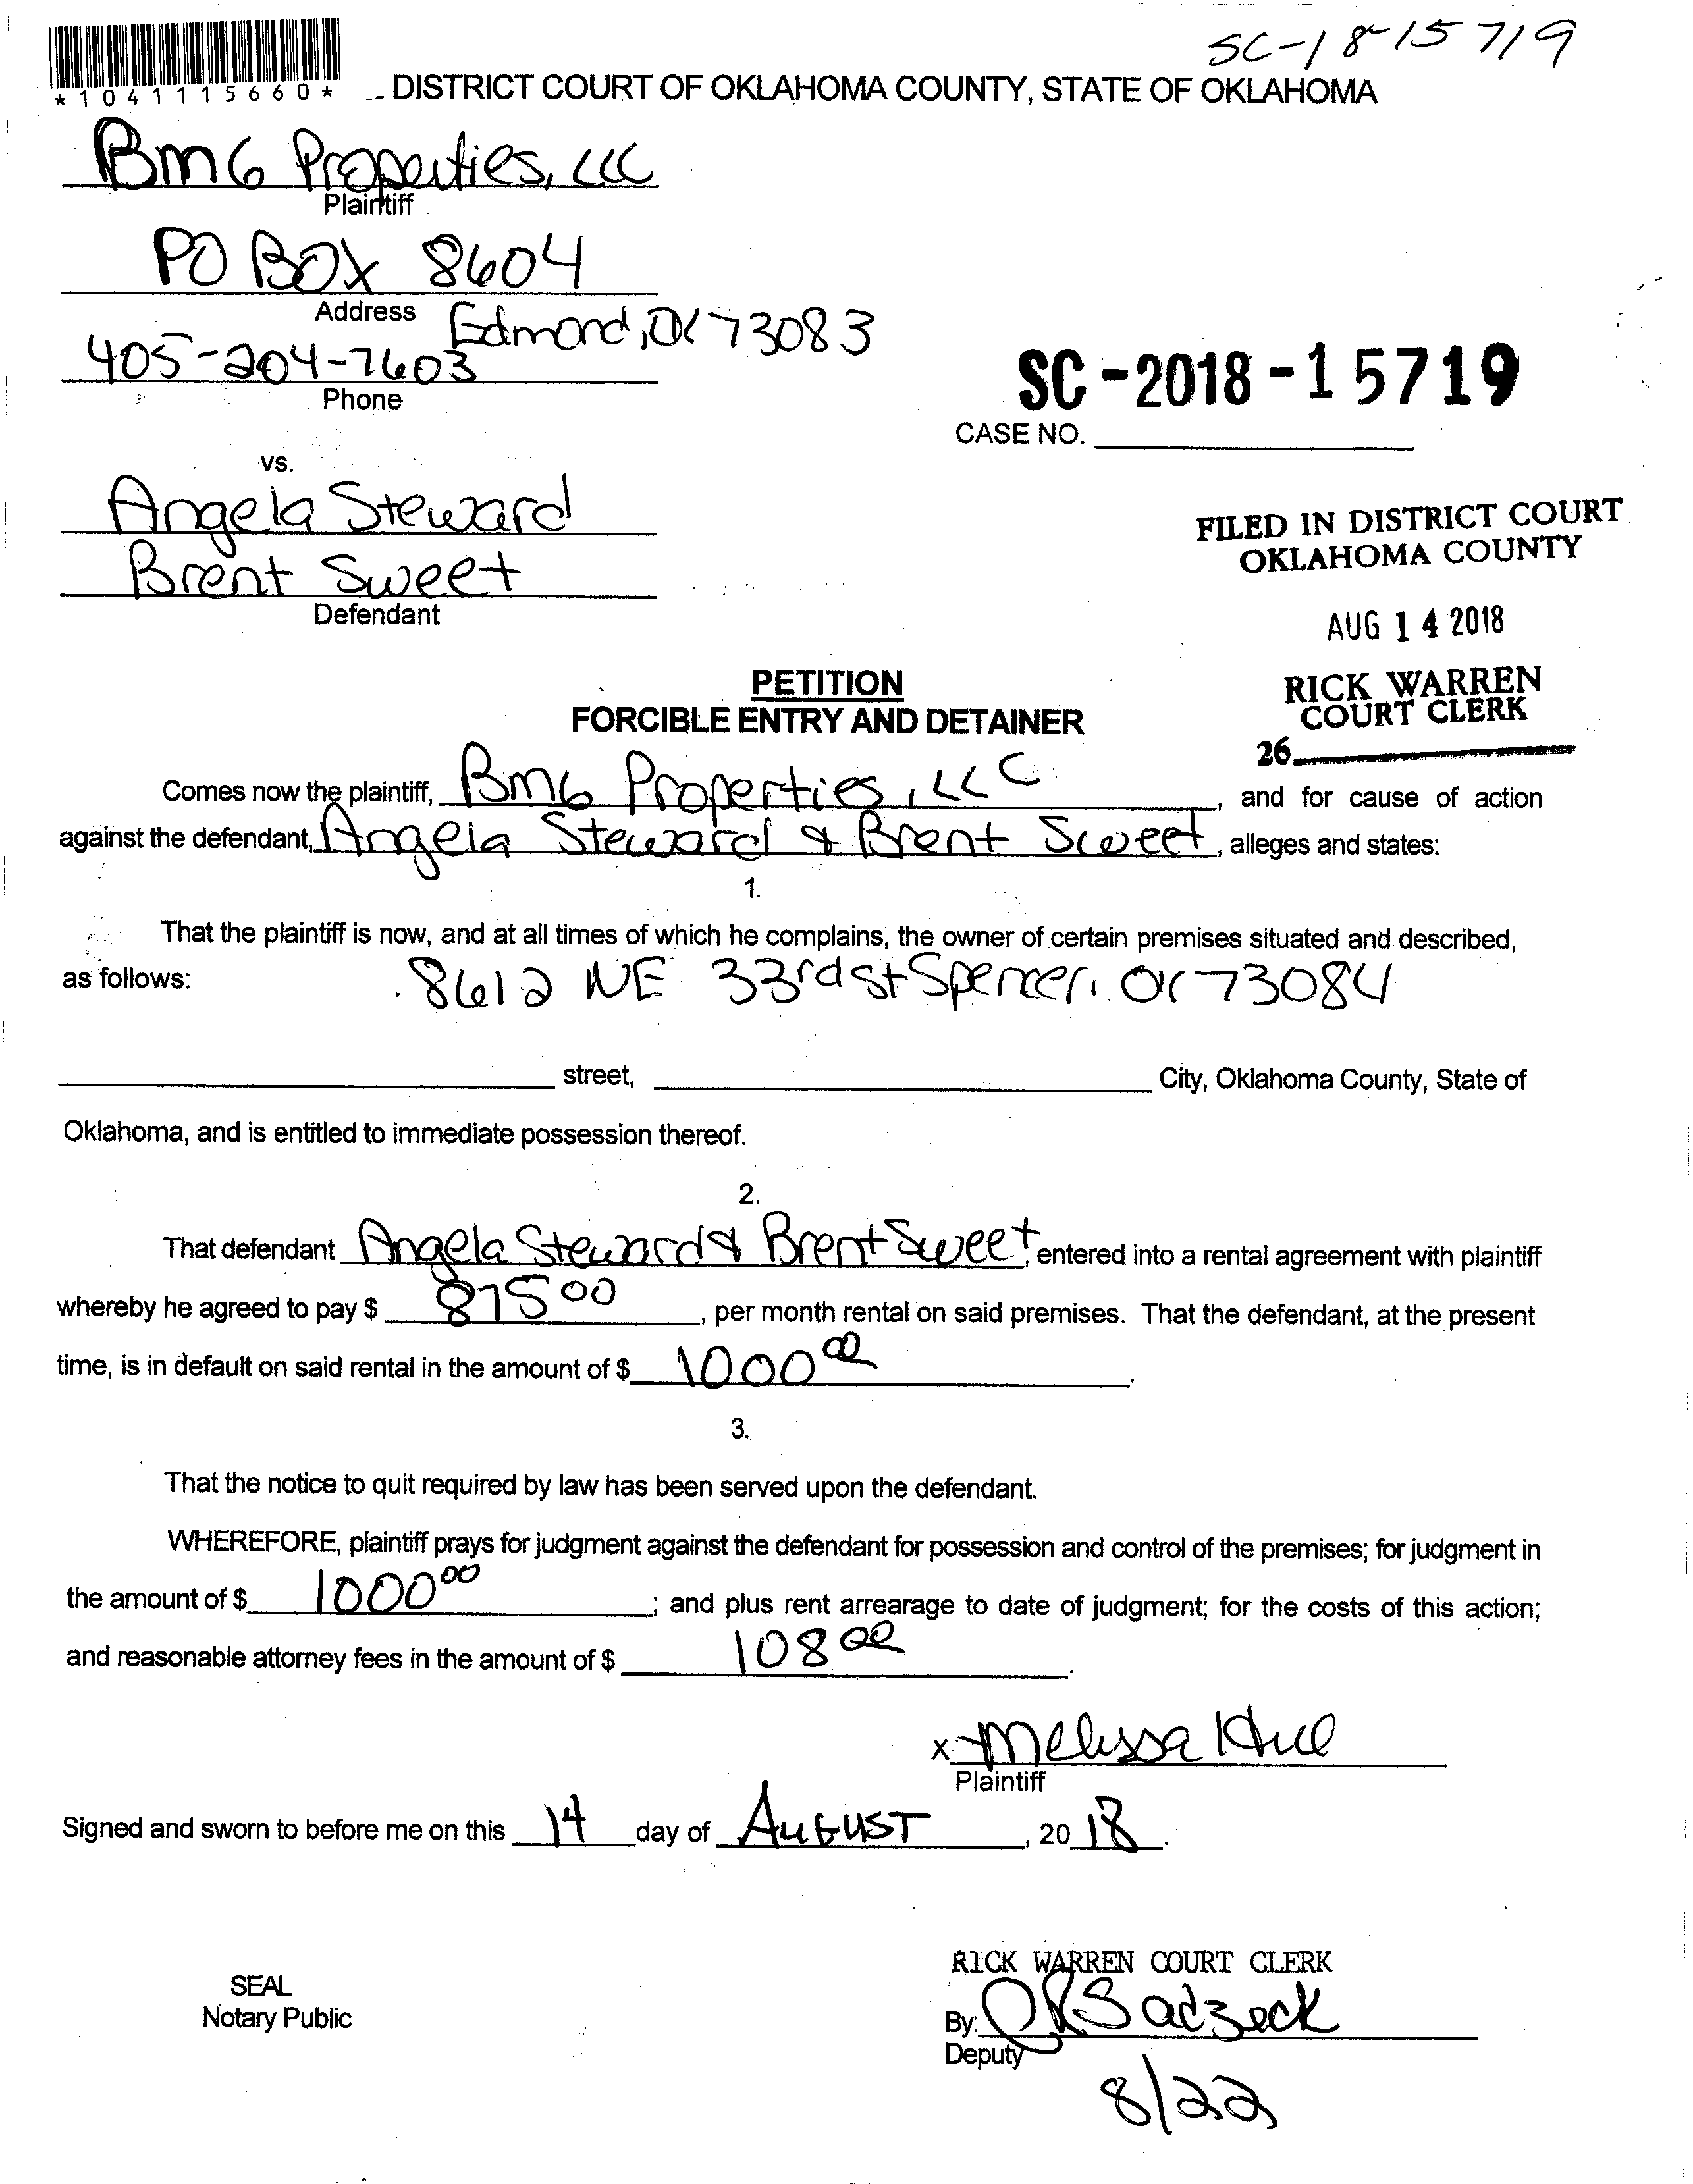 SC-18-15719
*1041115660*
DISTRICT COURT OF OKLAHOMA COUNTY, STATE OF OKLAHOMA
BMG Properties, LLC
Plaintiff
PO BOX 8604
Address
Edmond, OK 73083
405-204-7603
Phone
SC-2018-15719
CASE NO.
vs.
Angela Steward
Brent Sweet
Defendant
FILED IN DISTRICT COURT
OKLAHOMA COUNTY
AUG 14 2018
RICK WARREN
COURT CLERK
26
PETITION
FORCIBLE ENTRY AND DETAINER
Comes now the plaintiff, BMG Properties, LLC, and for cause of action
against the defendant, Angela Steward & Brent Sweet, alleges and states:
1.
That the plaintiff is now, and at all times of which he complains, the owner of certain premises situated and described,
as follows: 8612 NE 33rd St Spencer, OK 73084
street, City, Oklahoma County, State of
Oklahoma, and is entitled to immediate possession thereof.
2.
That defendant Angela Steward & Brent Sweet, entered into a rental agreement with plaintiff
whereby he agreed to pay $ 875 00, per month rental on said premises. That the defendant, at the present
time, is in default on said rental in the amount of $ 1000 00.
3.
That the notice to quit required by law has been served upon the defendant.
WHEREFORE, plaintiff prays for judgment against the defendant for possession and control of the premises; for judgment in
the amount of $ 1000 00; and plus rent arrearage to date of judgment; for the costs of this action;
and reasonable attorney fees in the amount of $ 108 00.
x Melissa Hill
Plaintiff
Signed and sworn to before me on this 14 day of August, 20 18.
RICK WARREN COURT CLERK
SEAL
Notary Public
By:
Deputy
8/22